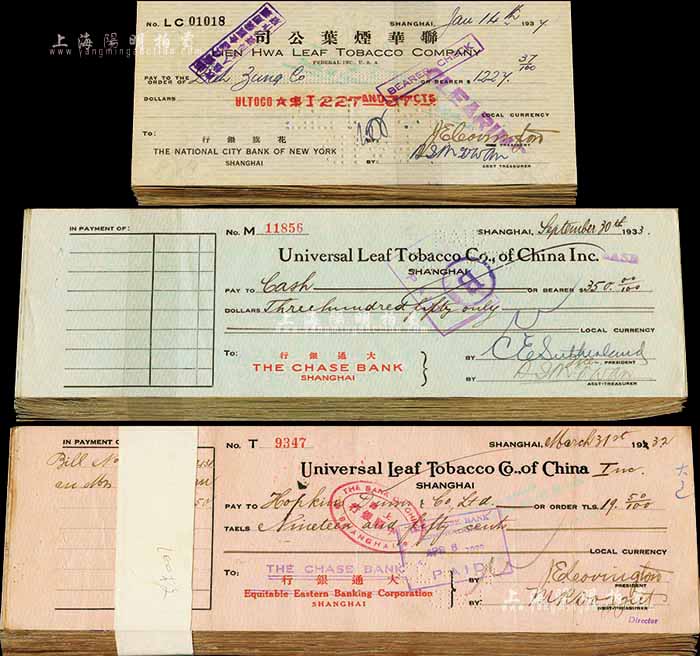 No. LC 01018
SHANGHAI, Jan 14th 1937
聯華煙葉公司
LIEN HWA LEAF TOBACCO COMPANY
FEDERAL INC., U. S. A.
BEARER CHECK
PAY TO THE
ORDER OF Zung Co OR BEARER $ 1227 37/100
CLEARING
DOLLARS HLTOCO 1227 AND 37 CTS
LOCAL CURRENCY
TO:
花旗銀行
THE NATIONAL CITY BANK OF NEW YORK
SHANGHAI
BY: J. E. Covington
PRESIDENT
BY:
ASST-TREASURER
上海陽明拍賣
www.yangmingauction.com
IN PAYMENT OF:
No. M 11856
SHANGHAI, September 30th 1933.
Universal Leaf Tobacco Co., of China Inc.
SHANGHAI
PAY TO Cash OR BEARER $ 350. 00/100
DOLLARS Three hundred fifty only
LOCAL CURRENCY
TO:
大通銀行
THE CHASE BANK
SHANGHAI
BY C E Sutherland
PRESIDENT
BY
ASST-TREASURER
上海陽明拍賣
IN PAYMENT OF
No. T 9347
SHANGHAI, March 31st 1932
Universal Leaf Tobacco Co., of China Inc.
PAY TO Hopkins Dunn & Co Ltd. OR ORDER TLS. 19. 50/100
TAELS Nineteen and fifty cents
LOCAL CURRENCY
PAID
TO:
THE CHASE BANK
大通銀行
Equitable Eastern Banking Corporation
SHANGHAI
BY: J. E. Covington
PRESIDENT
BY:
ASST-TREASURER
Director
上海陽明拍賣